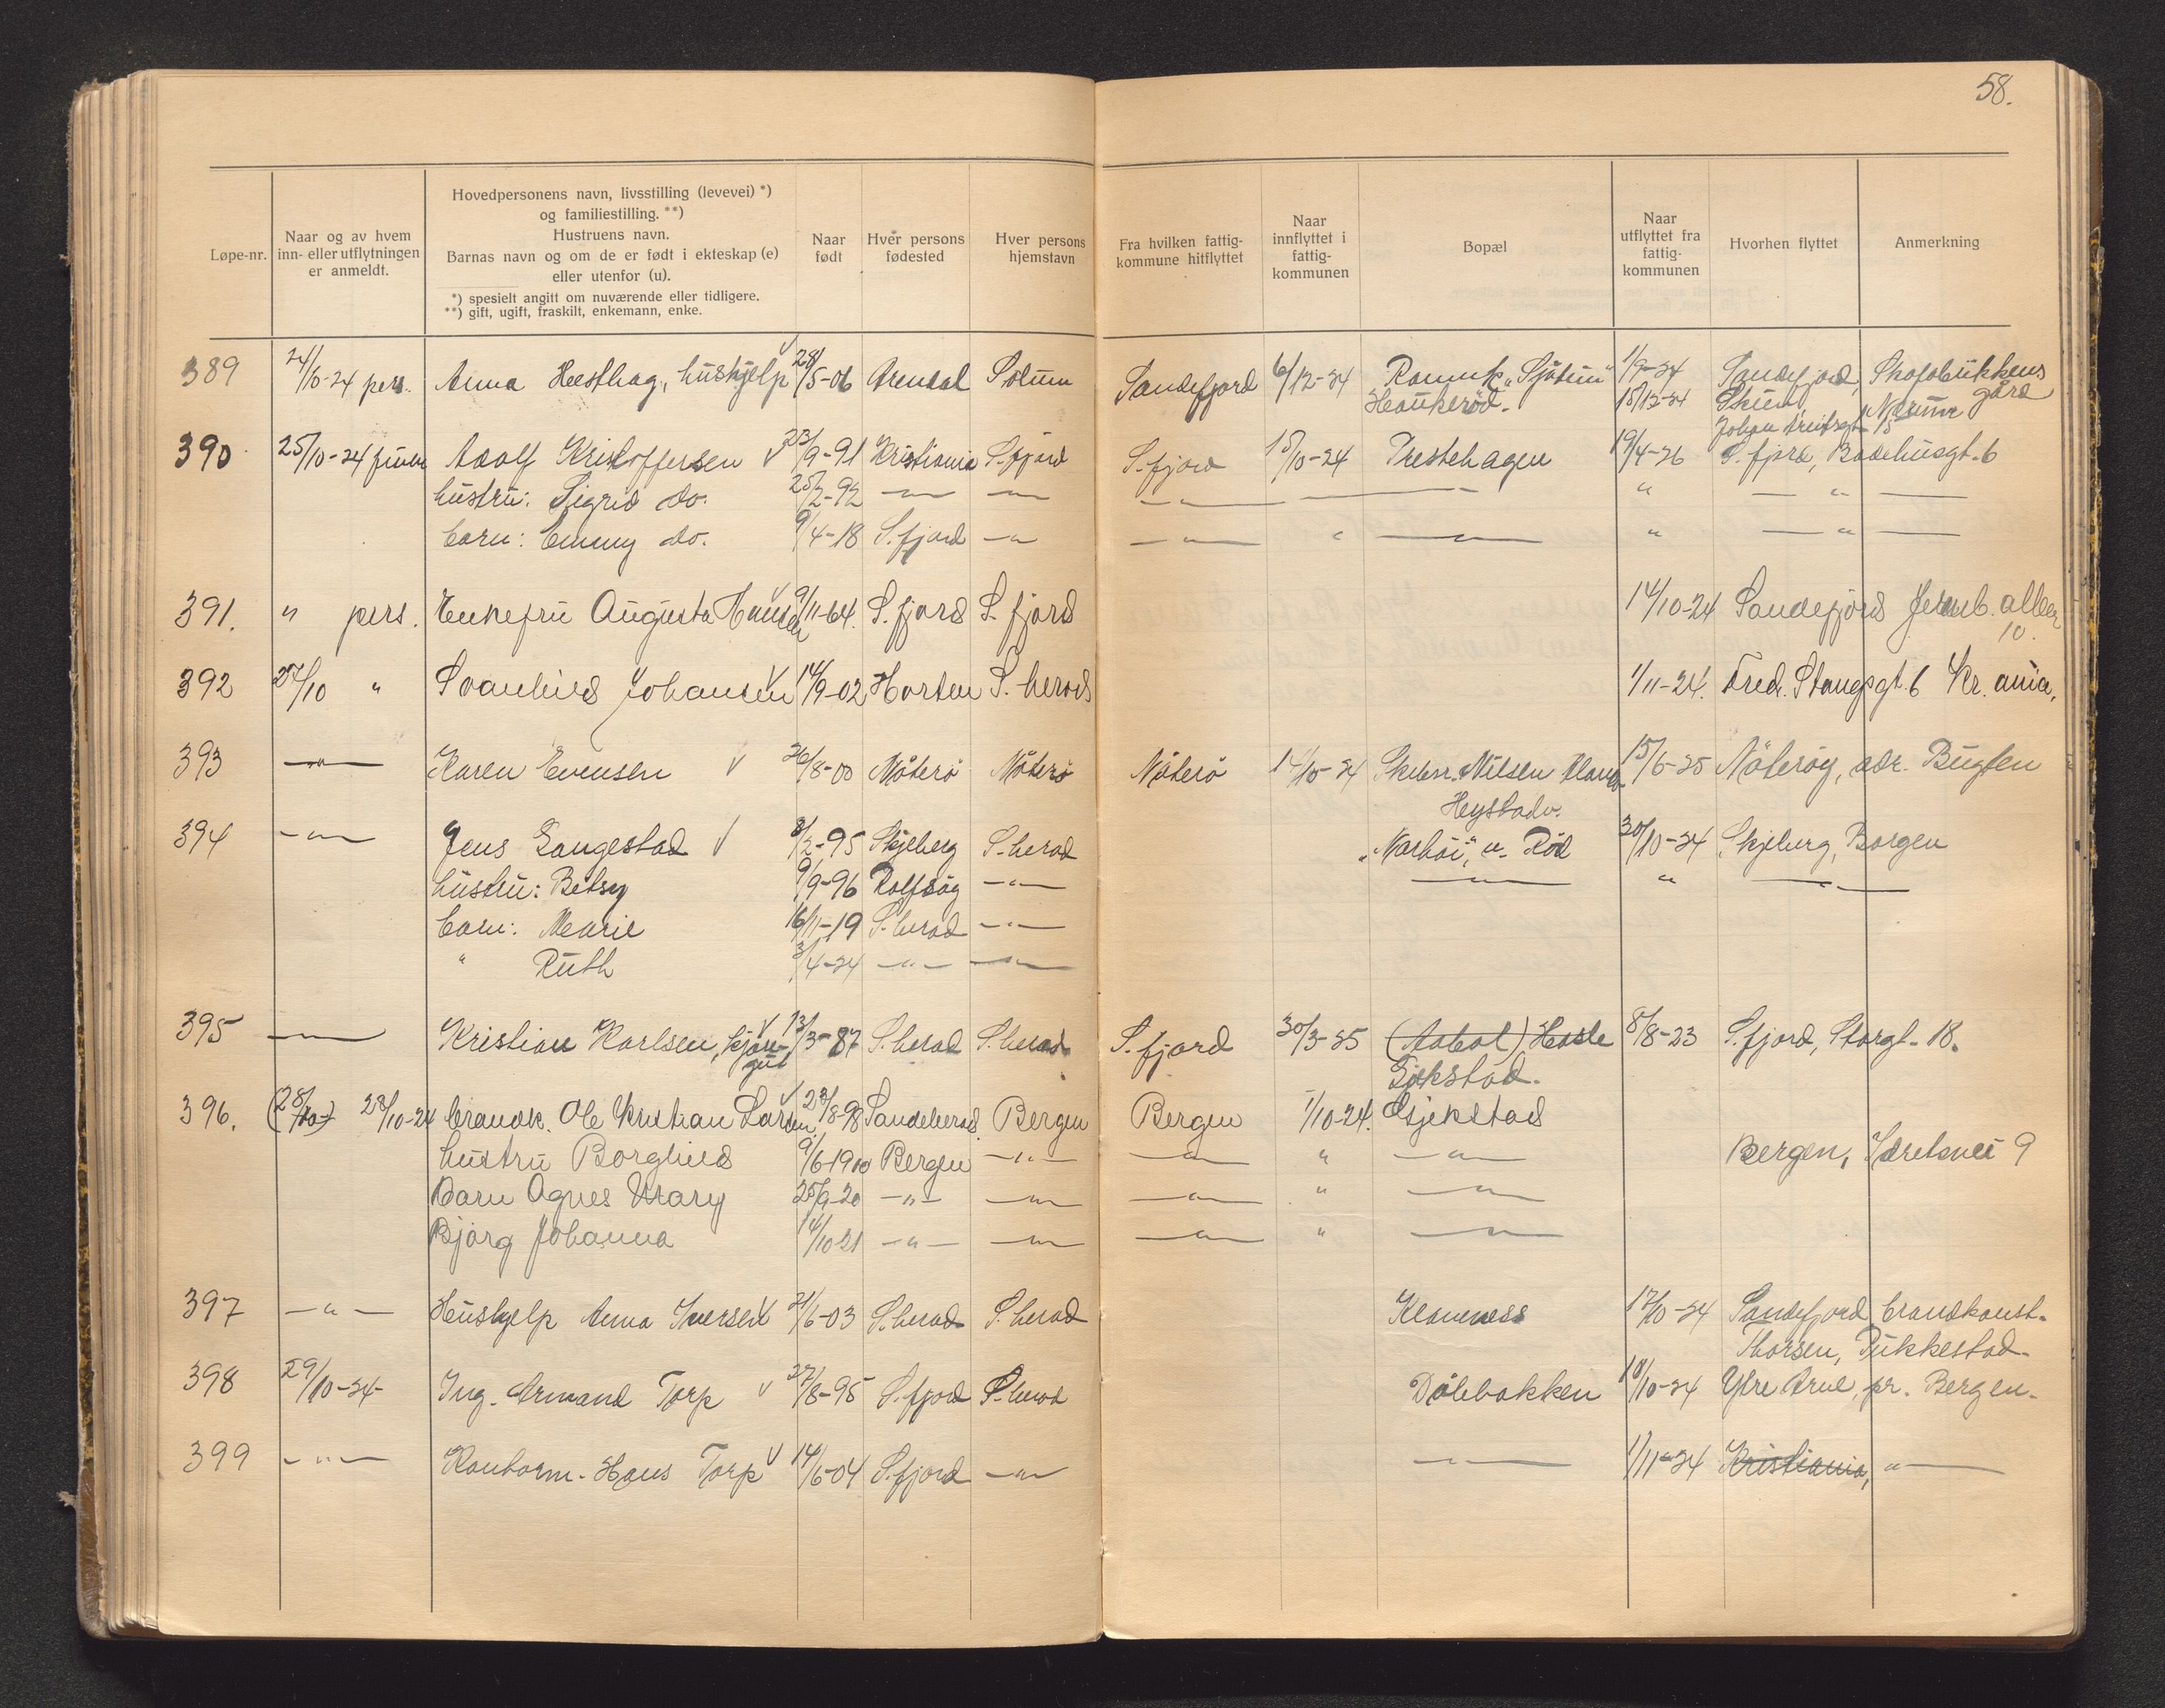 58.
Løpe-nr.
Naar og av hvem
inn- eller utflytningen
er anmeldt.
Hovedpersonens navn, livsstilling (levevei) *)
og familiestilling. **)
Hustruens navn.
Barnas navn og om de er født i ekteskap (e)
eller utenfor (u).
*) spesielt angitt om nuværende eller tidligere.
**) gift, ugift, fraskilt, enkemann, enke.
Naar
født
Hver persons
fødested
Hver persons
hjemstavn
Fra hvilken fattig-
kommune hitflyttet
Naar
innflyttet i
fattig-
kommunen
Bopæl
Naar
utflyttet fra
fattig-
kommunen
Hvorhen flyttet
Anmerkning
389 24/10-24 pers. Anna Hesthag, hushjelp 28/5-06 Arendal Solum Sandefjord 6/12-24 "Sjøtun" 1/9-24 Sandefjord,
Haukerød. 18/12-24 Skien gård
390 25/10-24 Adolf Kristoffersen 23/9-91 Kristiania S.fjord S.fjord 15/10-24 Prestehagen 19/4-26 S.fjord, Badehusgt. 6
hustru: Sigrid do. 25/2-92 —"— —"— —"— " —"—
barn: Emmy do. 9/4-18 S.fjord —"— —"— " —"— " —"—
391. " pers. Enkefru Augusta Hansen 9/11-64. S.fjord S.fjord 14/10-24 Sandefjord Jernb. alleen
10.
392 27/10 " Svanhild Johansen 14/9-02 Horten S.herad 1/11-24. Fred. Stangsgt. 6 Kr.ania.
393 —"— Karen Evensen 26/8-00 Nøterø Nøterø Nøterø Nilsen 15/6-25 Nøterøy, adr. Bugten
Heystadv.
394 —"— Jens Langestad 8/2-95 Skjeberg S.herad Rød 30/10-24 Skjeberg, Borgen
hustru: Betsy 9/9-96 Rolfsøy —"— —"— " —"—
barn: Marie 16/11-19 S.herad —"—
" Ruth 3/4-24 —"— —"—
395 —"— Kristian Karlsen, 13/3-87 S.herad S.herad S.fjord 30/3-25 Hasle 8/8-23 S.fjord, Storgt. 18.
Gjekstad.
396. (28/10-) 28/10-24 brandk. Ole Kristian Larsen 28/8-98 Sandeherad Bergen Bergen 1/10-24. Gjekstad
hustru Borghild 9/6-1900 Bergen —"— —"— " —"— Bergen, 9
Barn Agnes Mary 25/9-20 —"— —"— —"— " —"—
Bjørg Johanna 14/10-21 —"— —"— —"— " —"—
397 —"— Hushjelp Anna Iversen 21/6-03 S.herad S.herad Klavness 17/10-24 Sandefjord brandkonst.
Thorsen, Pukkestad.
398 29/10-24- Ing. Armand Torp 27/8-95 S.fjord S.herad Dølebakken 18/10-24 Ytre Arne, pr. Bergen.
399 —"— Kontorm. Hans Torp 14/6-04 S.fjord —"— —"— 1/11-24 Kristiania, —"—